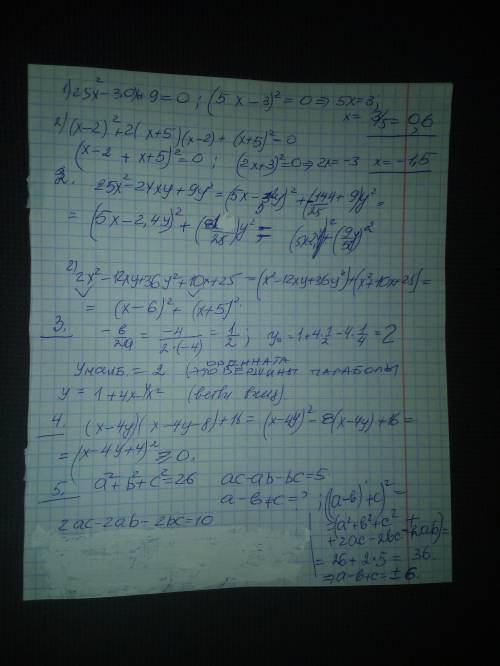 1) 25x² - 30x + 9 = 0 ; (5x - 3)² = 0 ⇒ 5x = 3;
x = 3/5 = 0,6
2) (x-2)² + 2(x+5)(x-2) + (x+5)² = 0
(x-2 + x+5)² = 0 ; (2x+3)² = 0 ⇒ 2x = -3 x = -1,5
2. 25x² - 24xy + 9y² = (5x - y)² + (-144/25 + 9)y² =
= (5x - 2,4y)² + (81/25)y² =
2) 2x² - 12xy + 36y² + 10x + 25 = (x² - 12xy + 36y²) + (x² + 10x + 25) =
= (x - 6)² + (x+5)²
3. -в/2а = -4/2·(-4) = 1/2 ; y₀ = 1 + 4·1/2 - 4·1/4 = 2
Унаиб. = 2 (это ордината вершины параболы
y = 1 + 4x - x² (ветви вниз).
4. (x-4y)(x-4y-8) + 16 = (x-4y)² - 8(x-4y) + 16 =
= (x-4y+4)² ≥ 0.
5. a² + b² + c² = 26 ac - ab - bc = 5
a - b + c = ? ; ((a-b)+c)² =
2ac - 2ab - 2bc = 10
= (a² + b² + c² +
+ 2ac - 2bc - 2ab) =
= 26 + 2·5 = 36.
⇒ a - b + c = ± 6.